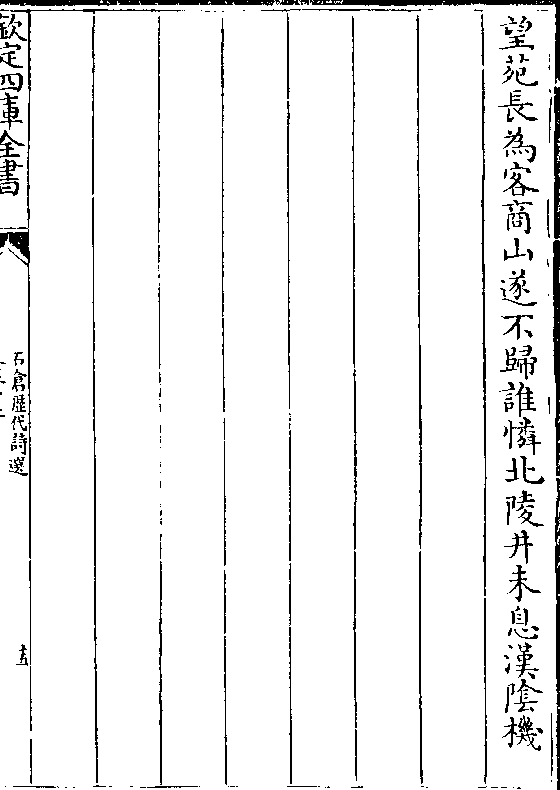 望苑長為客商山遂不歸誰憐北陵井未息漢陰機
欽定四庫全書
石倉歴代詩選
十五